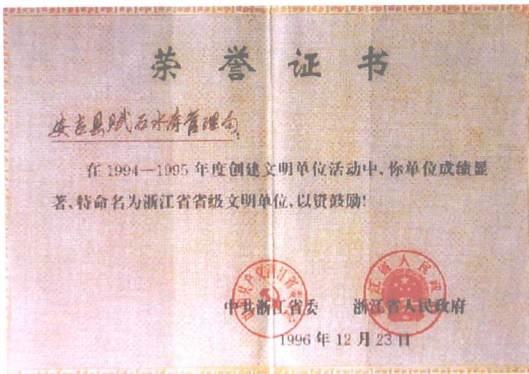 荣誉证书
安吉县赋石水库管理局:
在1994—1995年度创建文明单位活动中,你单位成绩显
著、特命名为浙江省省级文明单位,以资鼓励!
中共浙江省委 浙江省人民政府
1996年12月23日